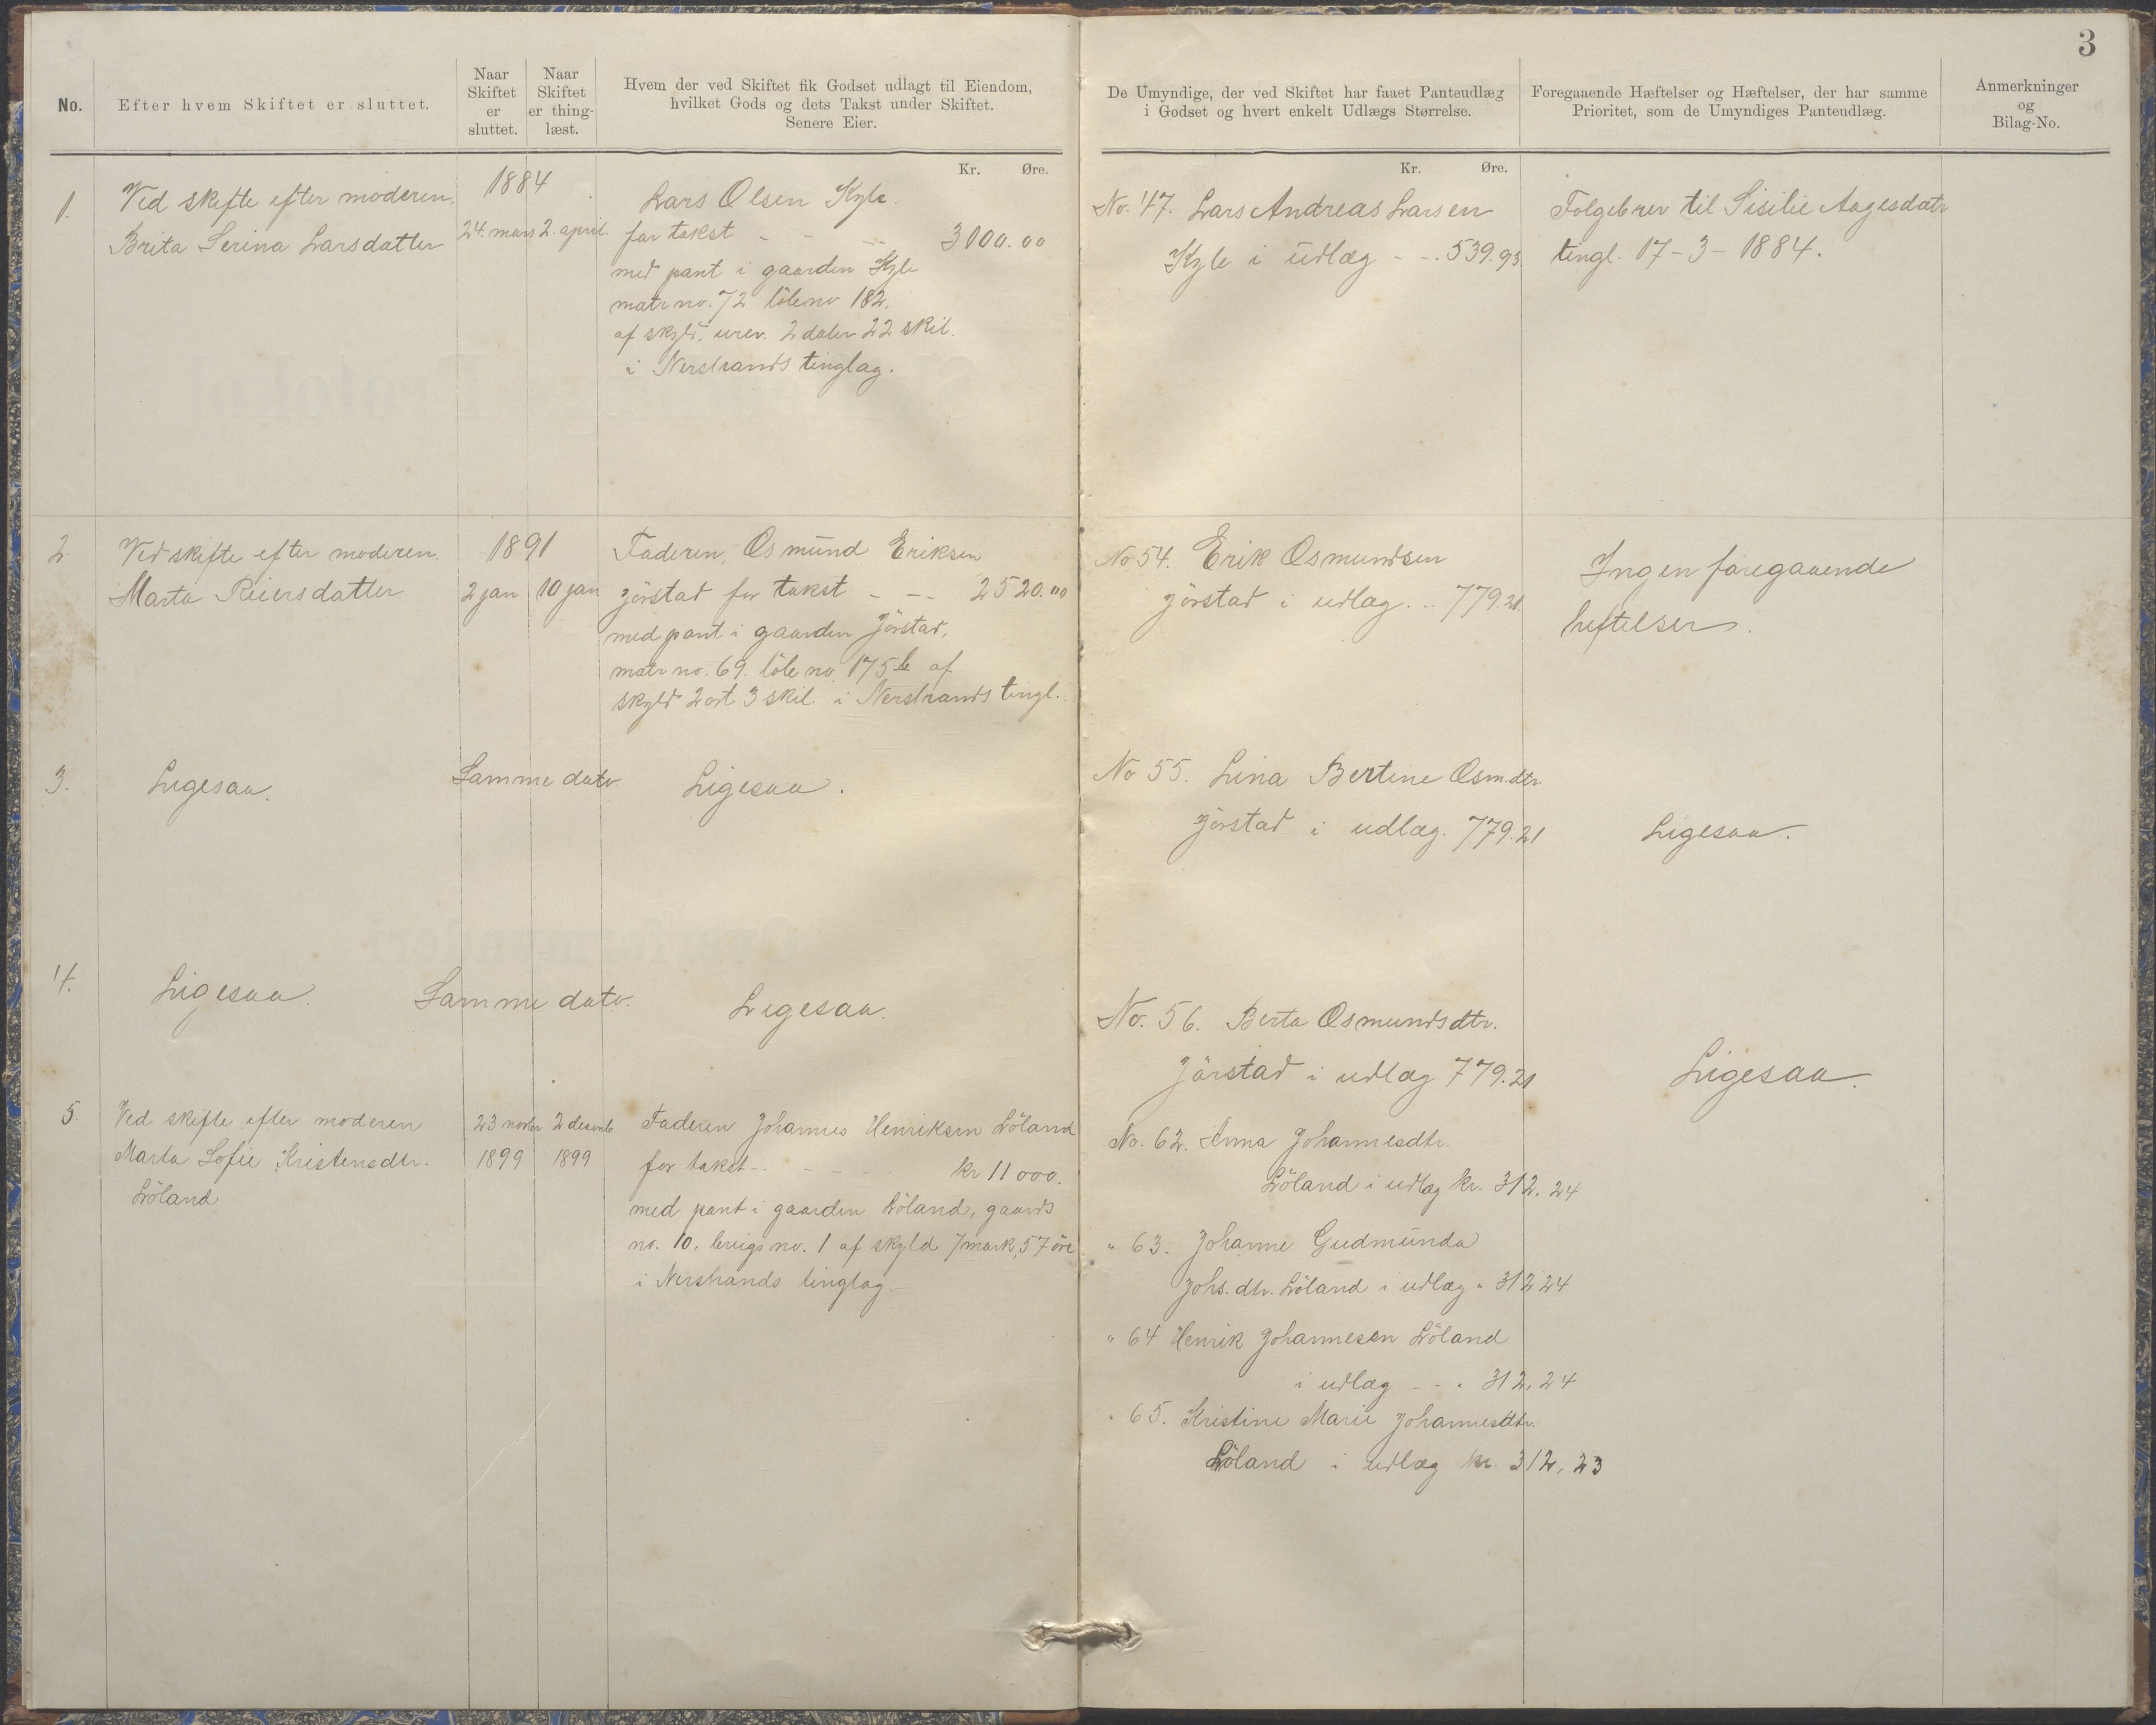 3
No.
Efter hvem Skiftet er sluttet.
Naar
Skiftet
er
sluttet.
Naar
Skiftet
er thing-
læst.
Hvem der ved Skiftet fik Godset udlagt til Eiendom,
hvilket Gods og dets Takst under Skiftet.
Senere Eier.
De Umyndige, der ved Skiftet har faaet Panteudlæg
i Godset og hvert enkelt Udlægs Størrelse.
Foregaaende Hæftelser og Hæftelser, der har samme
Prioritet, som de Umyndiges Panteudlæg.
Anmerkninger
og
Bilag-No.
Kr. Øre.
Kr. Øre.
1.
Ved skifte efter moderen,
Brita Serina Larsdatter
1884
24. mars 2. april.
Lars Olsen Kyle.
for takst - - - 3000.00
med pant i gaarden Kyle
matr no. 72 löbeno 182,
af skyld, urev. 2 daler 22 skil.
i Nerstrands tinglag.
No. 47. Lars Andreas Larsen
Kyle i udlæg - - . 539.93
Folgebrev til Sisilie Aagesdatr
tingl. 17-3-1884.
2.
Ved skifte efter moderen
Marta Reiersdatter
1891
2 jan 10 jan
Faderen, Osmund Eriksen
Jörstad for takst - - - 2520.00
med pant i gaarden Jörstad,
matr no. 69. löbe no. 175 b af
skyld 2 ort 3 skil. i Nerstrands tingl.
No 54. Erik Osmundsen
Jörstad i udlæg . .. 779.21.
Ingen foregaaende
heftelser.
3.
Ligesaa.
Samme dato.
Ligesaa.
No 55. Lina Bertine Osm.dtr.
Jörstad i udlæg. 779.21
Ligesaa.
4.
Ligesaa.
Samme dato.
Ligesaa.
No. 56. Berta Osmundsdtr.
Jörstad i udlæg 779.21
Ligesaa.
5.
Ved skifte efter moderen
Marta Sofie Kristensdtr.
Löland
23 novbr 2 desemb
1899 1899
Faderen Johannes Henriksen Löland
for takst - . - - - - kr 11000.
med pant i gaarden Löland, gaards
no. 10, brugs no. 1 af skyld 7 mark, 57 öre
i Nerstrands tinglag -
No. 62. Anna Johannesdtr.
Löland i udlæg kr. 312.24
" 63. Johanne Gudmunda
Johs. dtr. Löland i udlæg " 312 24
" 64 Henrik Johannesen Löland
i udlæg - - " 312,24
" 65. Kristine Marie Johannesdtr.
Löland i udlæg kr. 312,23